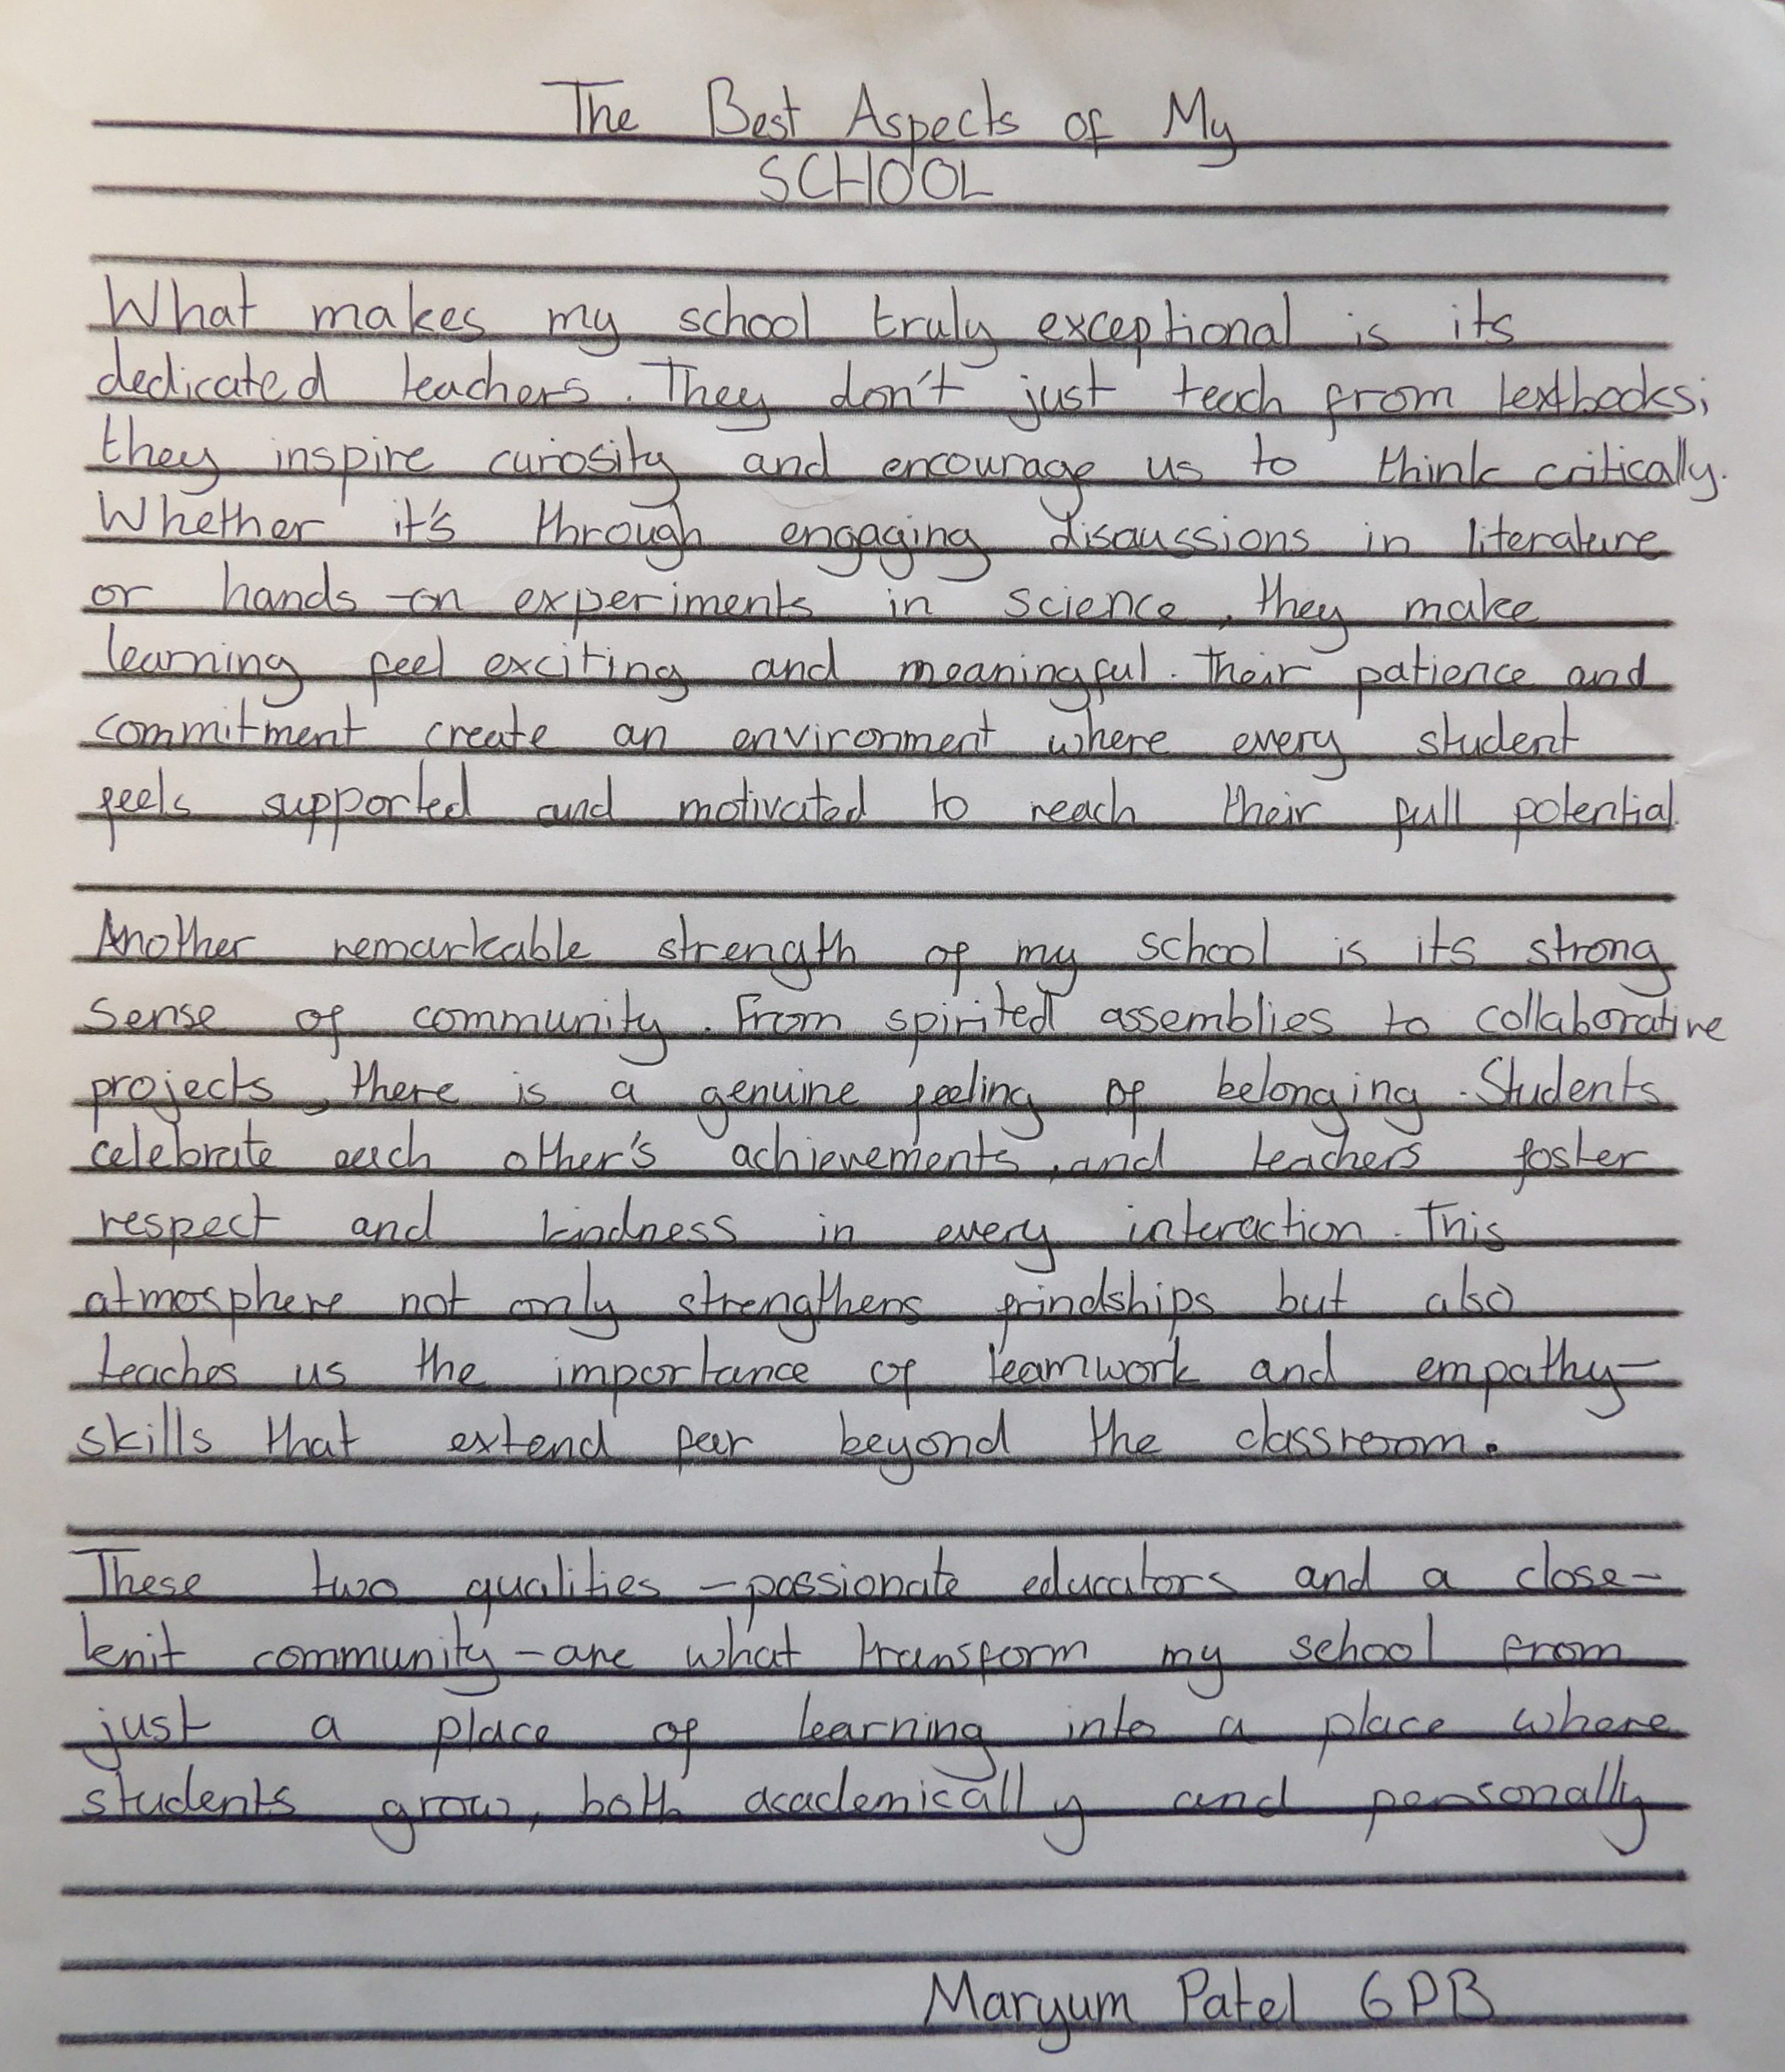 The Best Aspects of My
SCHOOL
What makes my school truly exceptional is its
dedicated teachers. They don't just teach from textbooks;
they inspire curiosity and encourage us to think critically.
Whether it's through engaging discussions in literature
or hands-on experiments in science, they make
learning feel exciting and meaningful. Their patience and
commitment create an environment where every student
feels supported and motivated to reach their full potential.
Another remarkable strength of my school is its strong
sense of community. From spirited assemblies to collaborative
projects, there is a genuine feeling of belonging. Students
celebrate each other's achievements, and teachers foster
respect and kindness in every interaction. This
atmosphere not only strengthens frindships but also
teaches us the importance of teamwork and empathy—
skills that extend far beyond the classroom.
These two qualities —passionate educators and a close-
knit community — are what transform my school from
just a place of learning into a place where
students grow, both academically and personally
Maryum Patel 6PB